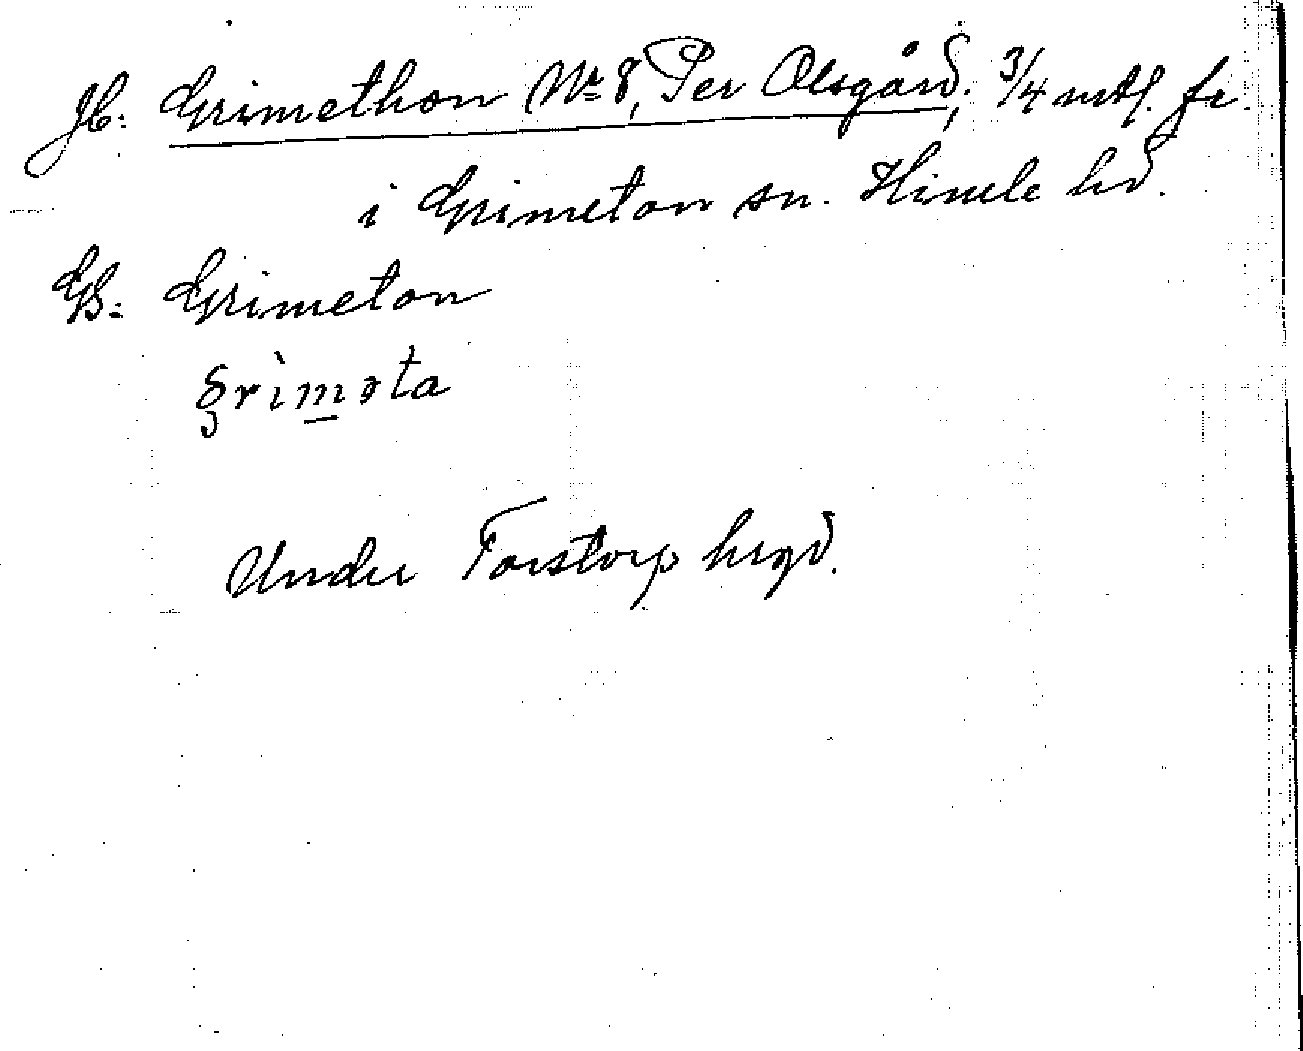 Jb: Grimethon № 8, Per Olsgård; 3/4 mtl. fr.
i Grimeton sn. Himle hd.
GB: Grimeton
grìməta
Under Torstorp hrgd.